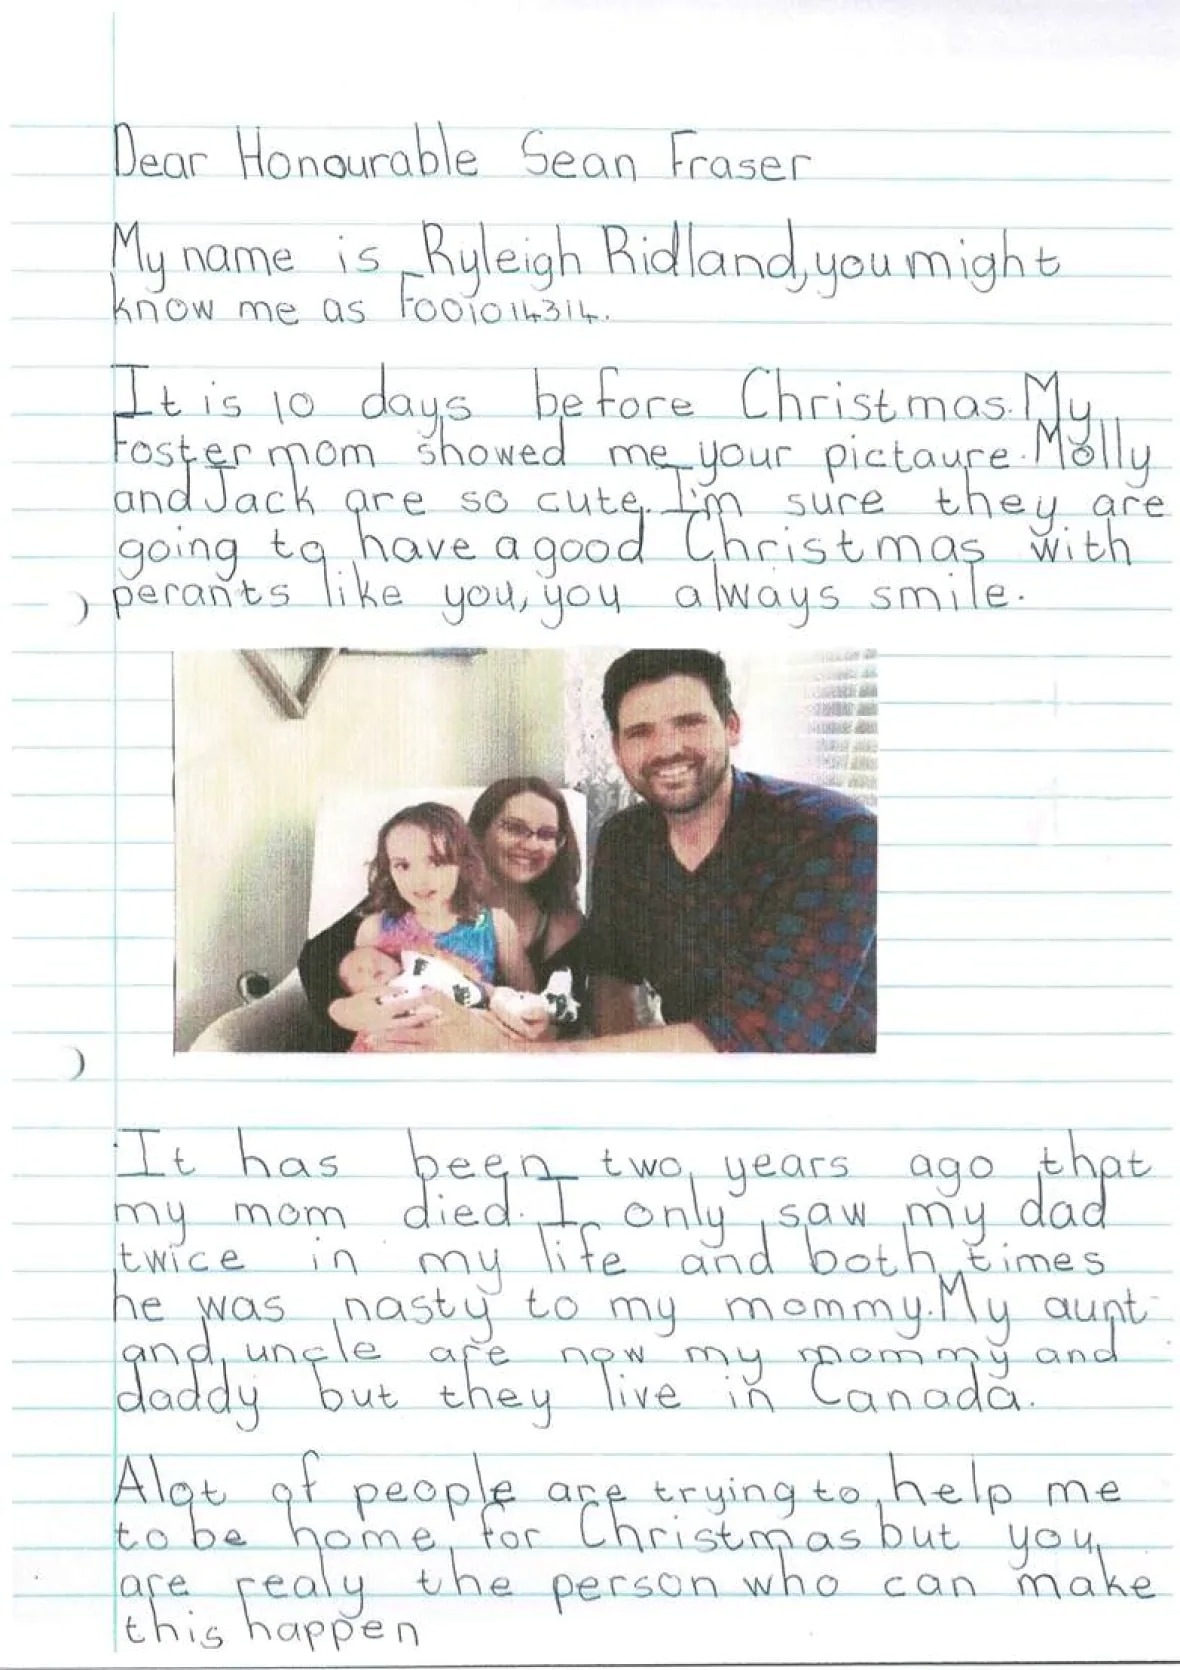 Dear Honourable Sean Fraser
My name is Ryleigh Ridland, you might
know me as F001014314.
It is 10 days before Christmas. My
foster mom showed me your pictaure. Molly
and Jack are so cute. I'm sure they are
going to have a good Christmas with
perants like you, you always smile.
It has been two years ago that
my mom died. I only saw my dad
twice in my life and both times
he was nasty to my mommy. My aunt
and uncle are now my mommy and
daddy but they live in Canada.
Alot of people are trying to help me
to be home for Christmas but you
are realy the person who can make
this happen